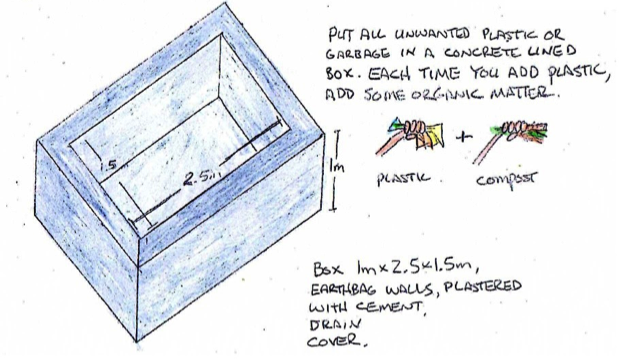 PUT ALL UNWANTED PLASTIC OR
GARBAGE IN A CONCRETE LINED
BOX. EACH TIME YOU ADD PLASTIC,
ADD SOME ORGANIC MATTER.
+
PLASTIC COMPOST
1.5
2.5m
1m
BOX 1m x 2.5 x 1.5m,
EARTHBAG WALLS, PLASTERED
WITH CEMENT,
DRAIN
COVER.